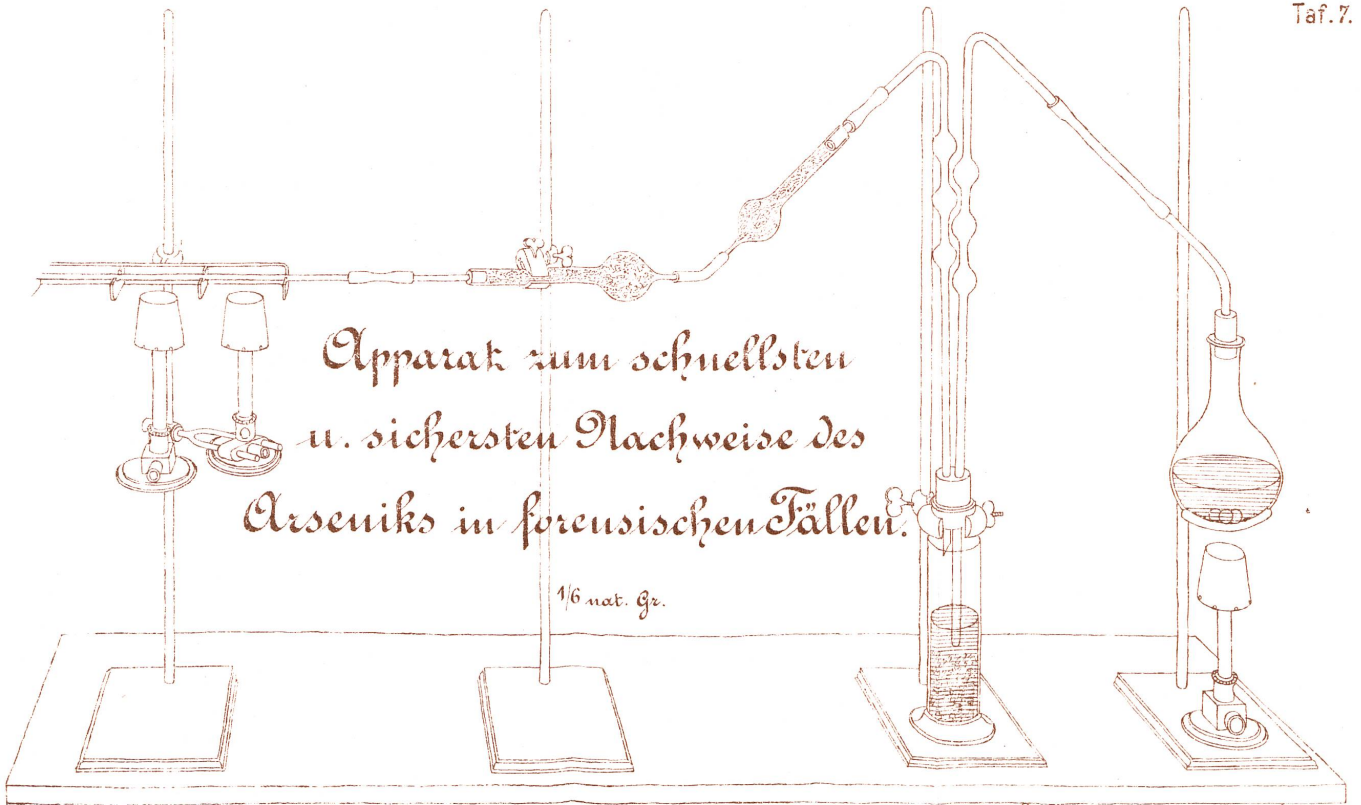 Taf. 7.
Apparat zum schnellsten
u. sichersten Nachweise des
Arseniks in forensischen Fällen.
1/6 nat. Gr.